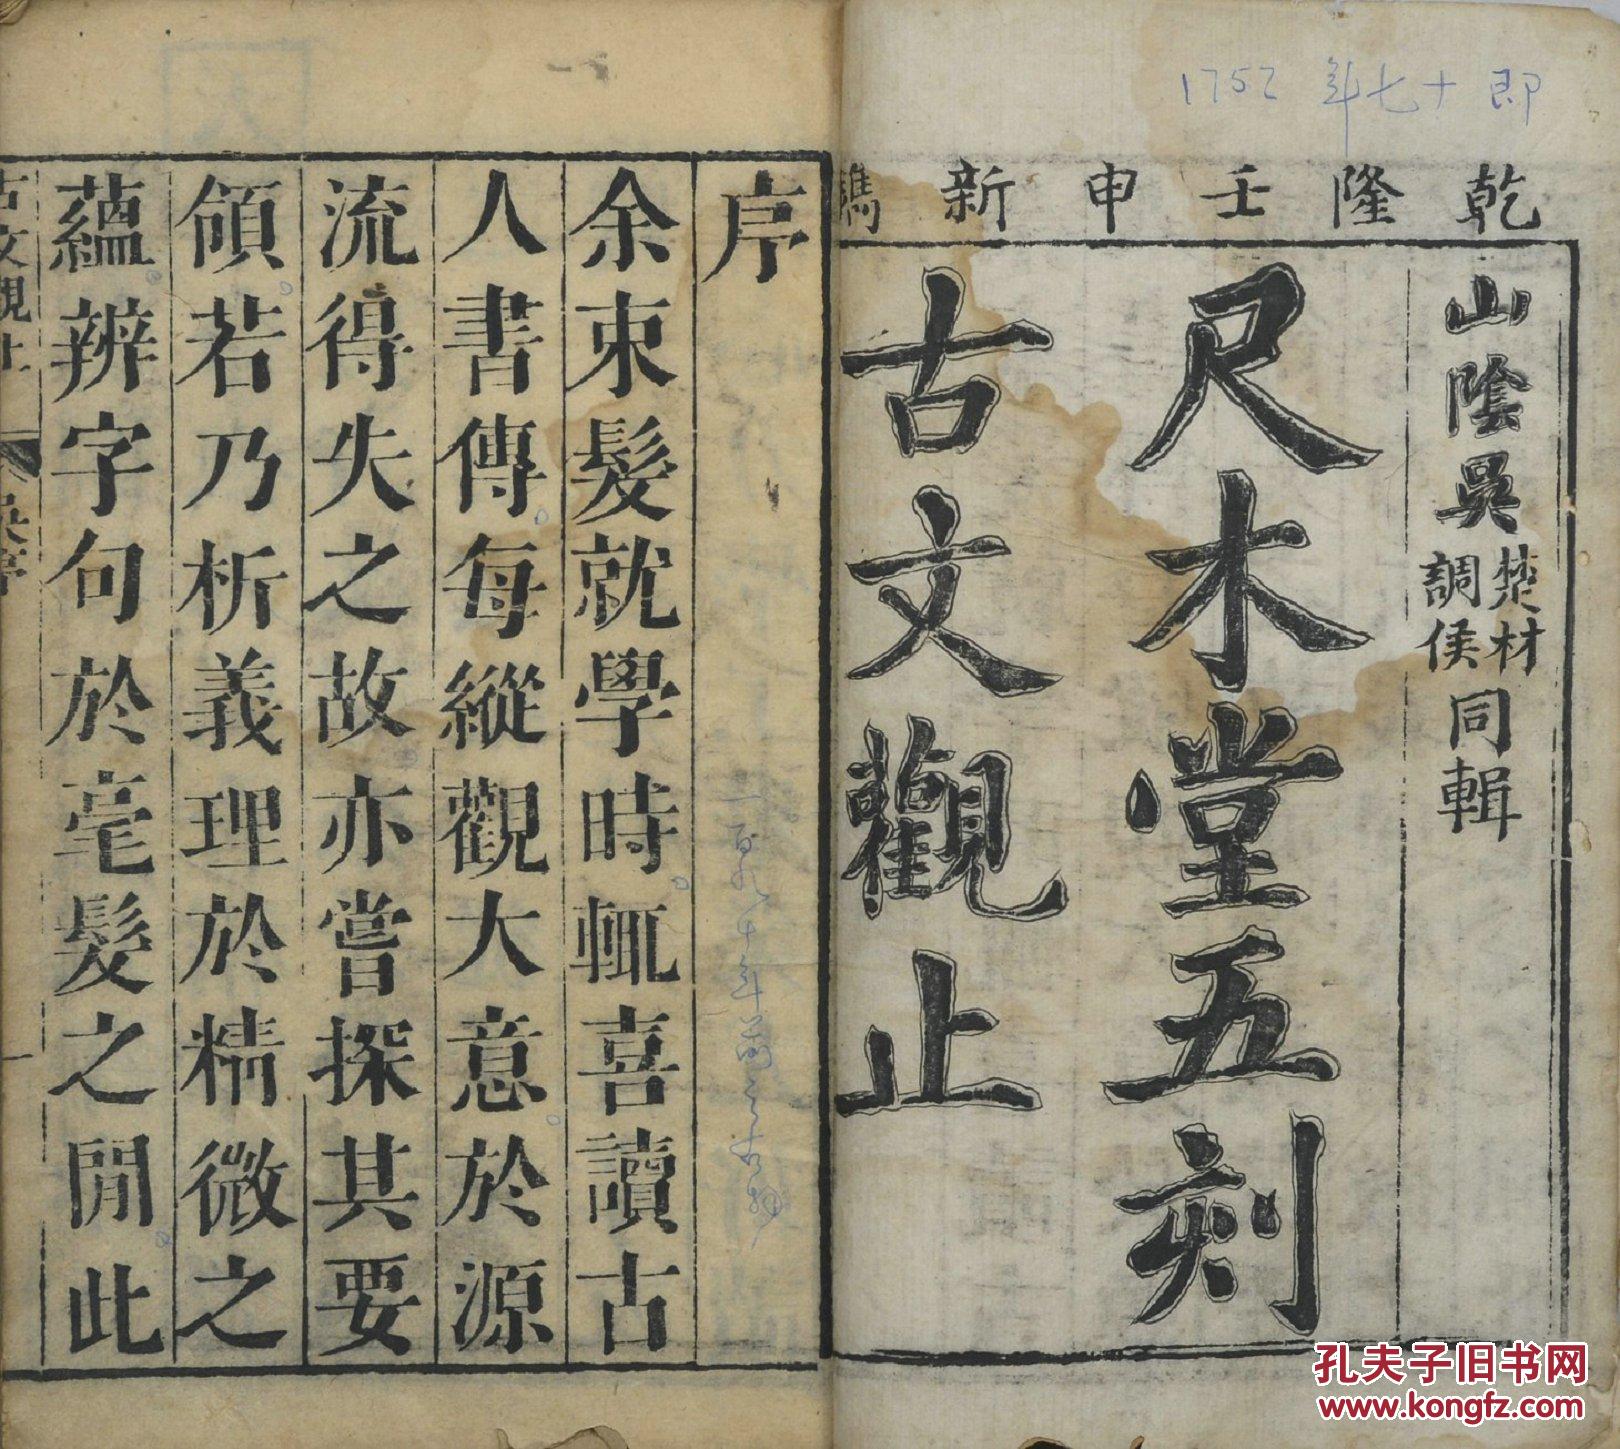 即十七年 1752
乾隆壬申新鐫
山陰吳楚材調侯同輯
尺木堂五刻
古文觀止
序
余束髮就學時輒喜讀古
人書傳每縱觀大意於源
流得失之故亦嘗探其要
領若乃析義理於精微之
蘊辨字句於毫髮之閒此
古文觀止
吳序
一
孔夫子旧书网
www.kongfz.com